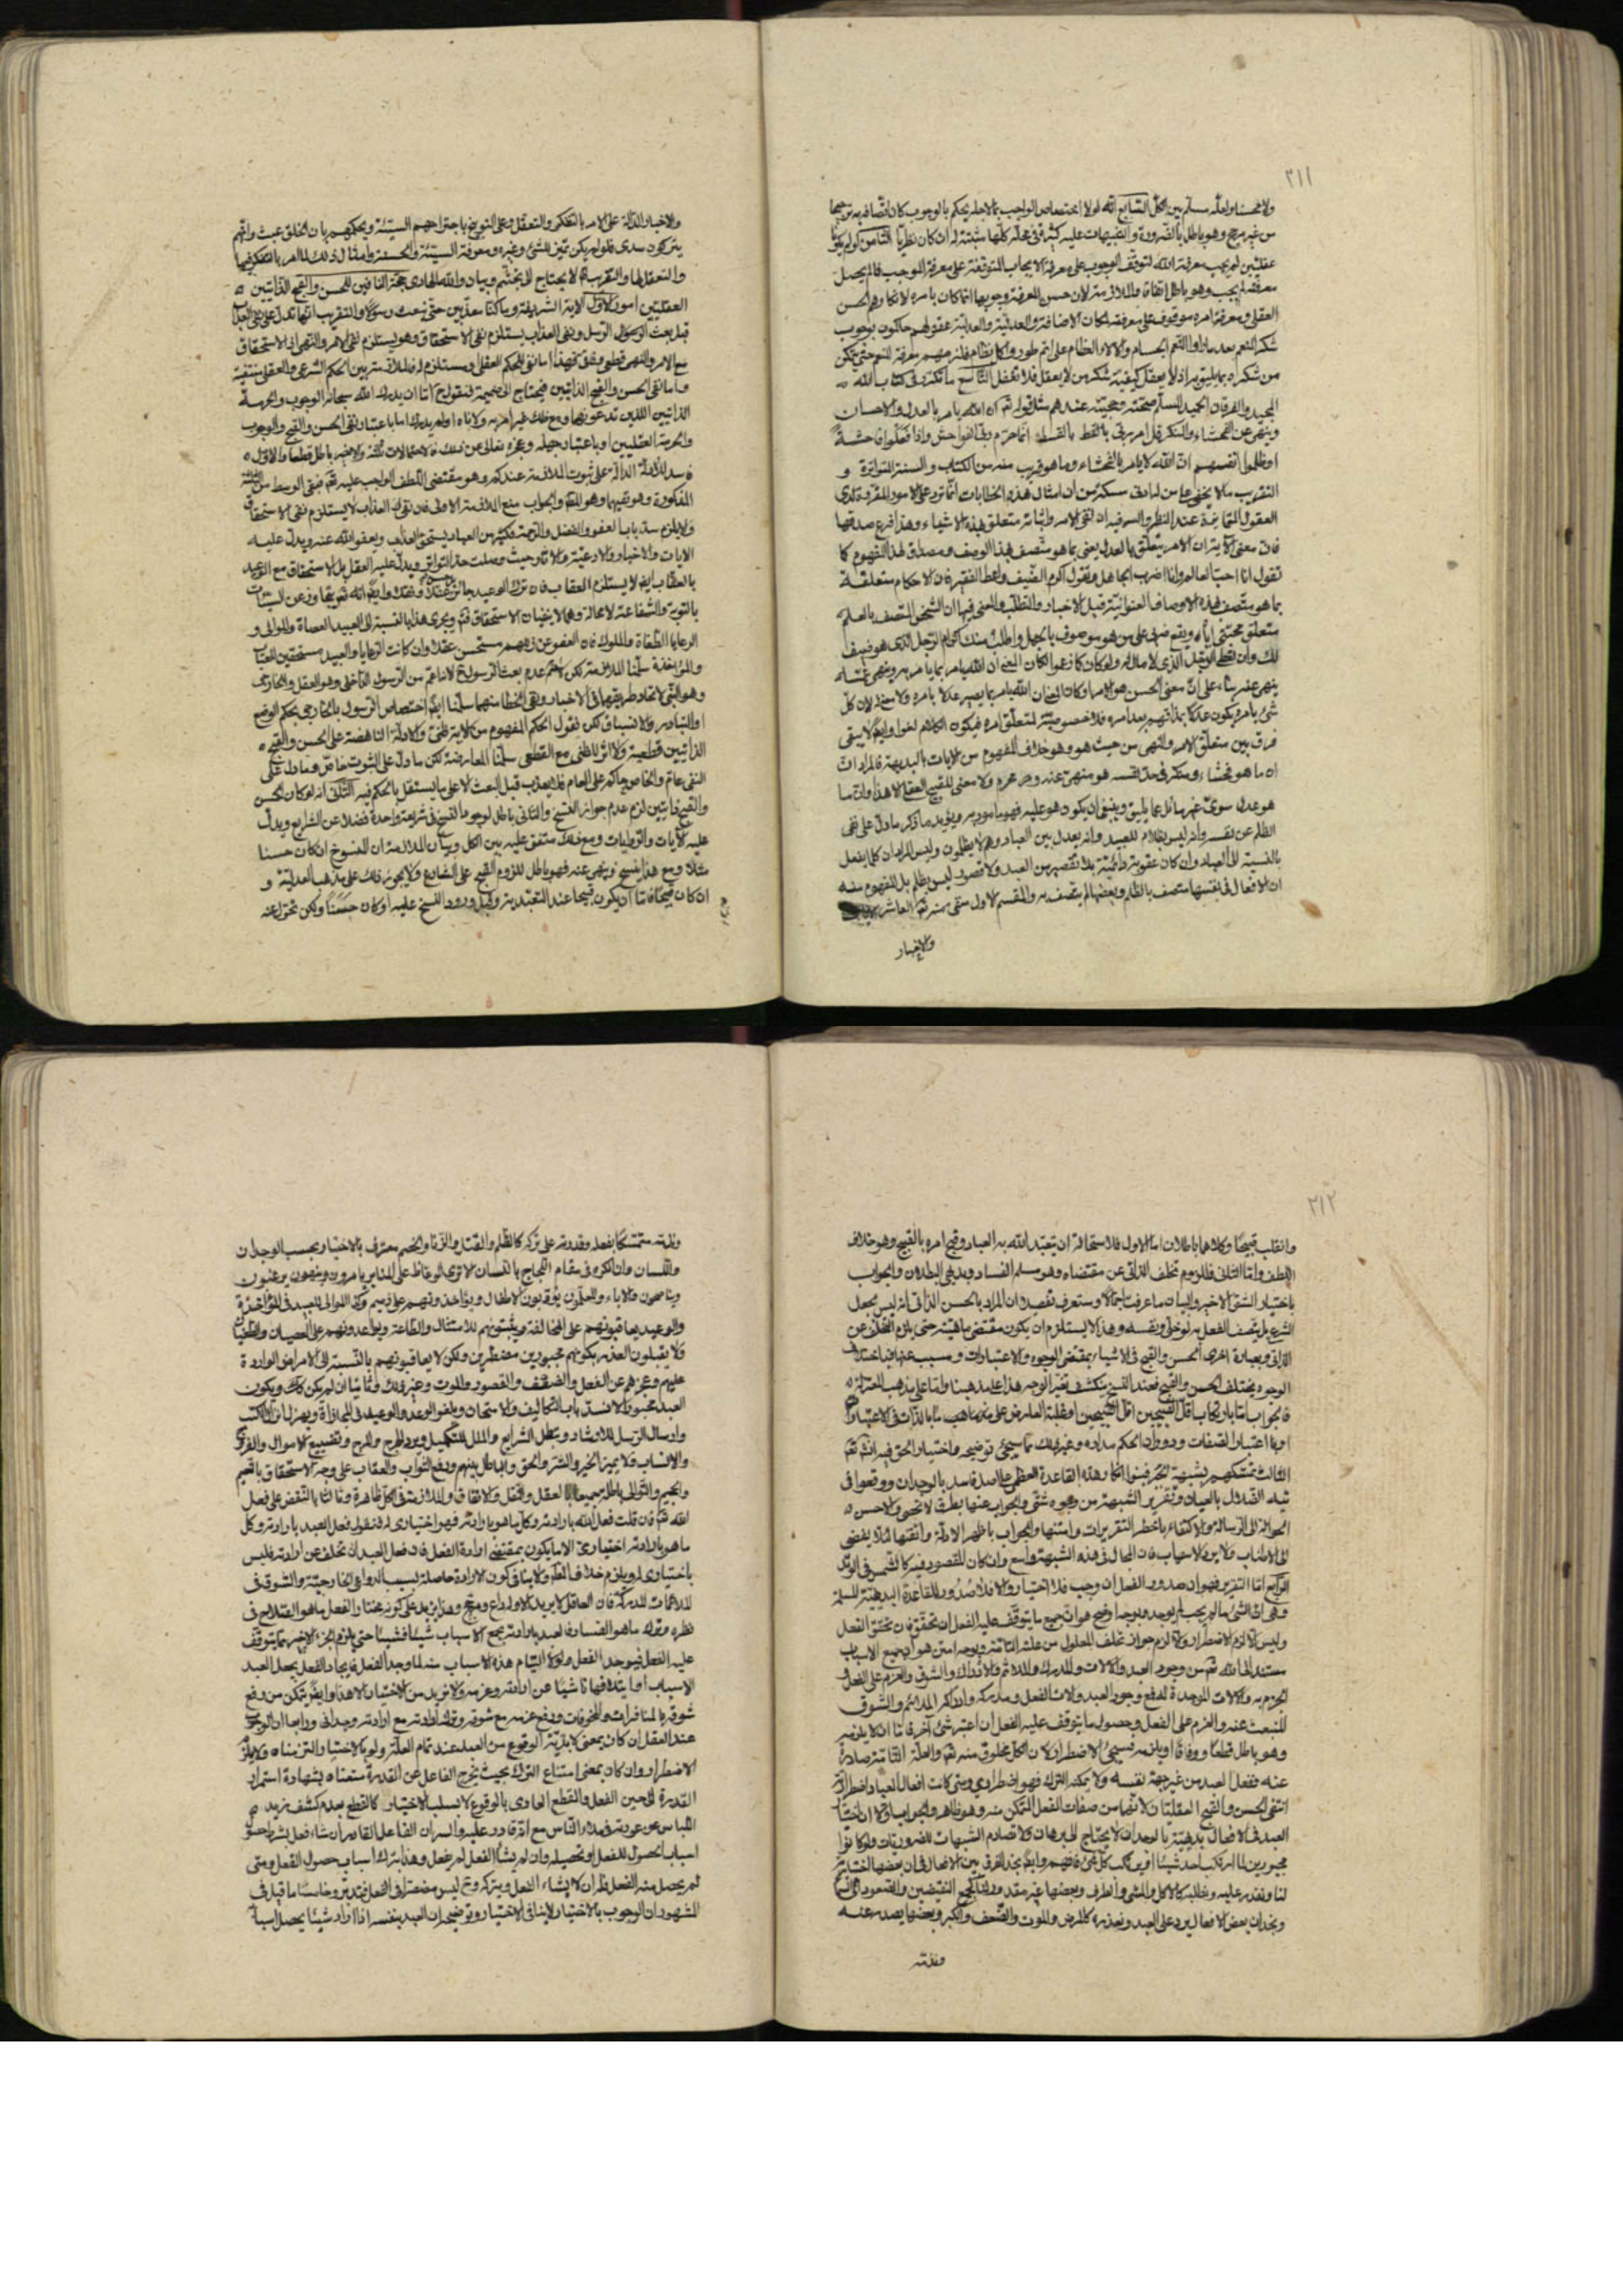 ٢١١
ولا محسنا ولعله مسلم بين الكل السابع انه لولا اختصاص الواجب بما لاجله يحكم بالوجوب كان اتصافه به ترجيحا
من غير مرجح وهو باطل بالضرورة والتنبيهات عليه كثيرة في محله كلها مثبتة له ان كان نظريا الثامن لو لم يكونا
عقليين لم يجب معرفة الله لتوقف الوجوب على معرفة الايجاب المتوقفة على معرفة الموجب فالم يحصل
معرفته لم يجب وهو باطل اتفاقا والملازمة لان حسن المعرفة ووجوبها انما كان بامره لانكارهم الحسن
العقلي ومعرفة امره موقوف على معرفته
شكر النعم بعد ما راوا النعم الجسام والآلاء العظام على اتم طور واكمل نظام فلزمهم معرفة المنعم حتى يتمكن
من شكره بما يليق به اذ لا يعقل كيفية شكر من لا يعقل فلا تغفل التاسع ما تكرر في كتاب الله
المجيد والفرقان الحميد المسلم صحته وحجيته عندهم مثل قوله تعم ان الله يامر بالعدل والاحسان
وينهى عن الفحشاء والمنكر قل امر ربي بالقسط انما حرم ربي الفواحش واذا فعلوا فاحشة
او ظلموا انفسهم ان الله لا يامر بالفحشاء وما هو قريب منه من الكتاب والسنة المتواترة و
التقريب ما لا يخفى على من له ادنى مسكة من ان امثال هذه الخطابات انما ترد على الامور المقررة لدى
العقول المتمايزة عند النظر والسر فيه ان نفي الامر واثباته متعلق بهذه الاشياء وهذا فرع صدقها
فان معنى الآية ان الامر يتعلق بالعدل يعني بما هو متصف بهذا الوصف ومصداق لهذا المفهوم كما
تقول انا احب العالم وانا اضرب الجاهل وتقول اكرم الضيف واعط الفقير فان الاحكام متعلقة
بما هو متصف بهذه الاوصاف العنوانية قبل الاخبار والتطلب والمعنى فيها ان الشخص المتصف بالعلم
متعلق محبتي اياه ويقع ضربي على من هو موصوف بالجهل واطلب منك اكرام الرجل الذي هو ضيف
لك وان تعطي الرجل الذي لا مال له ولو كان كما زعموا لكان المعنى ان الله يامر بما يامر به وينهى عما
ينهى عنه بناء على ان معنى الحسن هو الامر او كان المعنى ان الله يامر بما يصير عدلا بامره ولا معنى له لان كل
شئ يامره يكون عدلا بمذاقهم بعد امره فلا خصوصية لمتعلق امره فيكون الكلام لغوا وايضا لا يبقى
فرق بين متعلق الامر والنهي من حيث هو وهو خلاف المفهوم من الآيات بالبديهة فالمراد ان
ان ما هو فحشاء ومنكر في حد نفسه هو منهي عنه ولا معنى للقبيح العقلي الا هذا وان ما
هو عدل سوى غير مائل عما يليق وينبغي ان يكون هو عليه فهو مامور به ويؤيد ما ذكر ما دل على نفي
الظلم عن نفسه وانه ليس بظلام للعبيد وانه يعدل بين العباد وهم لا يظلمون وليس المراد ان كلما يفعل
بالنسبة الى العباد وان كان عقوبة دائمية بلا تقصير من العبد ولا قصور ليس بظلم بل المفهوم منه
ان الافعال في نفسها متصف بالظلم وبعضها لم يتصف به والقسم الاول منفي عنه تعم العاشر
والاخبار
والاخبار الدالة على الامر بالتفكر والتعقل وعلى التوبيخ باجتراحهم السيئة وبحكمهم بان الخلق عبث وانهم
يتركون سدى فلو لم يكن تميز للشئ وغيره ومعرفة السيئة والحسنة وامثال ذلك لما امر بالتفكر فيها
والتعقل لها والتقريب لا يحتاج الى تجشم وبيان والله الهادي حجة النافين للحسن والقبح الذاتيين
العقليين امور الاول الآية الشريفة وما كنا معذبين حتى نبعث رسولا والتقريب انها تدل على نفي العذاب
قبل بعث الرسول ونفي العذاب يستلزم نفي الاستحقاق وهو يستلزم نفي الامر والنهي اذ الاستحقاق
مع الامر والنهي قطعي
واما نفي الحسن والقبح الذاتيين فيحتاج الى ضميمة فنقول ح اما ان يدرك الله سبحانه الوجوب والحرمة
الذاتيين اللذين تدعونهما ومع ذلك غير امر به ولا ناه او لم يدرك اما باعتبار نفي الحسن والقبح والوجوب
والحرمة العقليين او باعتبار جهله وعجزه تعالى عن ذلك فالاحتمالات ثلثة والاخير باطل قطعا والاول
فاسد للادلة الدالة على ثبوت الملازمة عندكم وهو مقتضى اللطف الواجب عليه تعم فبقي الوسط من الثلثة
المذكورة وهو نفيهما وهو المطلوب والجواب منع الملازمة الاولى فان نفي العذاب لا يستلزم نفي الاستحقاق
والا يلزم سد باب العفو والفضل والرحمة فكثير من العباد يستحق العذاب ويعفو الله عنه ويدل عليه
الآيات والاخبار والادعية والآثار حيث وصلت حد التواتر ويدل عليه العقل بل الاستحقاق مع الوعيد
بالعقاب ايضا لا يستلزم العقاب فان ترك الوعيد جائز عقلا ونقلا
بالتوبة والشفاعة لا محالة وهما لا ينفيان الاستحقاق ثم ويجري هذا بالنسبة الى العبيد العصاة والموالي و
الرعايا الطغاة والملوك فان العفو عن زعمهم مستحسن عقلا وان كانت الرعايا والعبيد مستحقين للعتاب
والمؤاخذة سلمنا الملازمة لكن لا نعلم عدم بعث الرسول ح لانا اعم من الرسول الداخلي وهو العقل والخارجي
وهو النبي
او التبادر والانسباق لكن نقول الحكم المفهوم من الآية ظني والادلة الناهضة على الحسن والقبح
الذاتيين قطعية ولا اثر للظني مع القطعي سلمنا المعارضة لكن ما دل على الثبوت خاص وما دل على
النفي عام والخاص حاكم على العام فلا يعذب قبل البعث الا على ما يستقل بالحكم فيه الثاني انه لو كان الحسن
والقبح ذاتيين لزم عدم جواز النسخ والتالي باطل لوجود النسخ في شريعة واحدة فضلا عن الشرايع ويدل
عليه الآيات والروايات ومع ذلك متفق عليه بين الكل وبيان الملازمة ان المنسوخ ان كان حسنا
مثلا ومع هذا ينسخ وينهى عنه فهو باطل للزوم القبح على الشارع ولا يجوز ذلك على مذهب العدلية و
ان كان قبيحا فاما ان يكون قبيحا عند التعبد به وقبل ورود النسخ عليه او كان حسنا ولكن تحول عنه
٢١٢
وانقلب قبيحا وكلاهما باطلان اما الاول فلاستحالة ان يتعبد الله به العباد وقبح امره بالقبيح وهو خلاف
اللطف واما الثاني فللزوم تخلف الذاتي عن مقتضاه وهو مسلم الفساد وبديهي البطلان والجواب
باختيار الشق الاخير والبيان ما عرفت اجمالا وستعرف تفصيلا ان المراد بالحسن الذاتي انه ليس بجعل
الشرع بل يتصف الفعل به لو خلي ونفسه وهذا لا يستلزم ان يكون مقتضى ماهيته حتى يلزم التخلف عن
الذاتي وبعبارة اخرى الحسن والقبح في الاشياء بمقتضى الوجوه والاعتبارات
الوجوه يختلف الحسن والقبح فعند النسخ ينكشف تغير الوجه هذا على مذهبنا واما على مذهب المعتزلة
فالجواب اما بارتكاب اقل القبيحين
او بما اعتبار الصفات ودوران الحكم مداره وغير ذلك مما سيجئ توضيحه واختيار الحق فيه انشاء الله تعم
الثالث تمسكهم بشبهة الجبر فبنوا انكار هذه القاعدة العظمى على اصل فاسد بالوجدان ووقعوا في
تيه الضلال بالعيان وتقرير الشبهة من وجوه شتى والجواب عنها بطرق لا تحصى والاحسن
الحوالة الى الرسالة والاكتفاء باخصر التقريرات وامتنها والجواب باظهر الادلة واتقنها لئلا يفضي
الى الاطناب ولا يؤل الى الاسهاب فان المجال في هذه الشبهة واسع وان كان المقصود فيه كالشمس في
اما التقرير فهو ان صدور الفعل ان وجب فلا اختيار والا فلا صدور للقاعدة البديهية المسلمة
وهي ان الشئ ما لم يجب لم يوجد وبوجه اوضح هو ان جميع ما يتوقف عليه الفعل ان تحقق فان تحقق الفعل
وليس الا لزم الاضطرار والا لزم جواز تخلف المعلول عن علته التامة وبوجه امتن هو ان جميع الاسباب
مستند الى الله تعم من وجود العبد والآلات والمدرك والملائم والادراك والشوق والعزم على الفعل و
الجزم به
المنبعث عنه والعزم على الفعل وحصول ما يتوقف عليه الفعل ان اعتبر شئ آخر فاما ان لا يلزمه
وهو باطل قطعا ووفاقا او يلزمه فيجئ الاضطرار لان الكل مخلوق منه تعم والعلة التامة صادرة
عنه ففعل العبد من غير جهة نفسه ولا يمكنه الترك فهو اضطراري ومتى كانت افعال العباد اضطرارية
انتفى الحسن والقبح العقليتان لانهما من صفات الفعل المتمكن منه وهو ظاهر والجواب اولا ان اختيار
العبد في الافعال بديهية بالوجدان لا يحتاج الى برهان ولا تصادم الشبهات للضروريات ولو كانوا
مجبورين لما ارتكب احد شيئا او يرتكب كل شئ فافهم وايضا نجد الفرق بين الافعال في ان بعضها اختيارية
لنا ونقدر عليه ونطلبه كالاكل والمشي والطرف وبعضها غير مقدور لنا كجمع النقيضين والصعود الى السماء
ونجد ان بعض الافعال يرد على العبد ونعذره كالمرض والموت والضعف والكبر وبعضها يصدر عنه
ونذمه
ونذمه متمسكا بفعله وقدرته على تركه كالظلم والقتل والزنا والخصم معترف بالاختيار بحسب الوجدان
واللسان وان انكره في مقام اللجاج باللسان الا ترى الوعاظ على المنابر يامرون وينهون يرغبون
ويناصحون والآباء والمعلمون يؤدبون الاطفال ويؤاخذونهم على ذميم وكذا الموالي للعبيد في المؤاخذة
والوعيد يعاقبونهم على المخالفة ويثيبونهم للامتثال والطاعة ويواعدونهم على العصيان والطغيان
ولا يقبلون العذر بكونهم مجبورين مضطرين ولكن لا يعاقبونهم بالنسبة الى الامراض الواردة
عليهم وعجزهم عن الفعل والضعف والقصور والموت وغير ذلك وثانيا ان لم يكن كذلك ويكون
العبد مجبورا لانسد باب التكاليف والامتحان ويلغو الوعد والوعيد في المجازاة
وارسال الرسل للارشاد وتبطل الشرايع والملل للتكميل ويرد الهرج والمرج وتضييع الاموال والفروج
والانساب ولا يميز الخير والشر والحق والباطل بينهم ودفع الثواب والعقاب على وجه الاستحقاق بالنعيم
والجحيم والتوالي باطلة جميعا بالعقل والنقل والاتفاق والملازمة في الكل ظاهرة وثالثا بالنقض على فعل
الله تعم فان قلت فعل الله بارادته وكل ما هو بارادته فهو اختياري له فنقول فعل العبد بارادته وكل
ما هو بارادته اختياري الا ما يكون بمقتضى ارادة الفعل فان فعل العبد ان تخلف عن ارادته فليس
باختياري له ويلزم خلاف الفرض ولا ينافي كون الارادة حاصلة بسبب الدواعي الخارجية والشوق في
الملائمات المدركة فان العاقل لا يريد الا بداع ومرجح وهذا يزيد على كونه مختارا والفعل ما هو الصلاح في
نظره وترك ما هو الفساد فالعبد بارادته يجمع الاسباب شيئا فشيئا حتى يلزم الجزء الاخير مما يتوقف
عليه الفعل فيوجد الفعل ولولا التيام هذه الاسباب منه لما وجد الفعل فايجاد الفعل بجعل العبد
الاسباب
شوقه بالمنافرات والمخوفات ودفع عزمه مع شوقه وترك ارادته مع ارادته وجداني ورابعا ان الوجوب
عند العقل ان كان بمعنى لابدية الوقوع من العبد عند تمام العلة ولو بالاختيار التزمناه ولا يلزم
الاضطرار وان كان بمعنى امتناع الترك بحيث يخرج الفاعل عن القدرة منعناه بشهادة استمرار
القدرة الى حين الفعل والقطع العادي بالوقوع لا يسلب الاختيار كالقطع بعدم كشف زيد
اللباس عن عورته في ملاء الناس مع انه قادر عليه والسر ان الفاعل القادر ان شاء فعل
اسباب الحصول للفعل او تحصيله وان لم يشأ الفعل لم يفعل وهذا بترك اسباب حصول الفعل ومتى
لم يحصل منه الفعل ظهر ان لا يشاء الفعل ويتركه وح ليس مضطرا في الفعل فتدبر وخامسا ما قيل في
المشهور ان الوجوب بالاختيار لا ينافي الاختيار وتوضيحه ان العبد بنفسه اذا اراد شيئا يحصل اسبابه